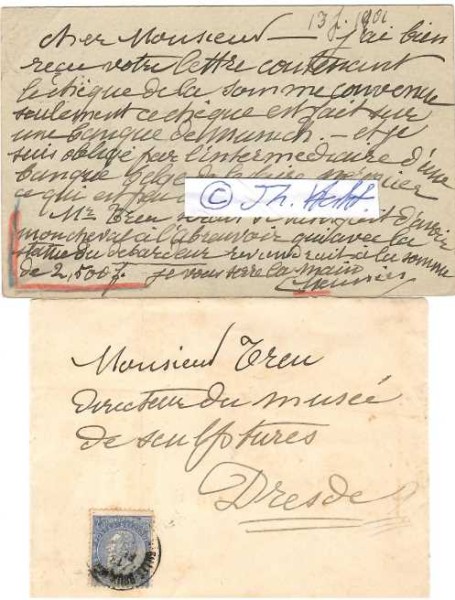 13 f. 1901
cher Monsieur — j'ai bien
reçu votre lettre contenant
le chèque de la somme convenue
seulement ce chèque est fait sur
une banque de Munich. — et je
suis obligé par l'intermédiaire d'une
banque belge de
ce qui
Mr Treu d'avoir
mon cheval à l'abreuvoir qui avec la
statue du débardeur reviendrait à la somme
de 2,500 f. je vous serre la main
CMeunier
© Th. Hecht
Monsieur Treu
Directeur du musée
de sculptures
Dresde